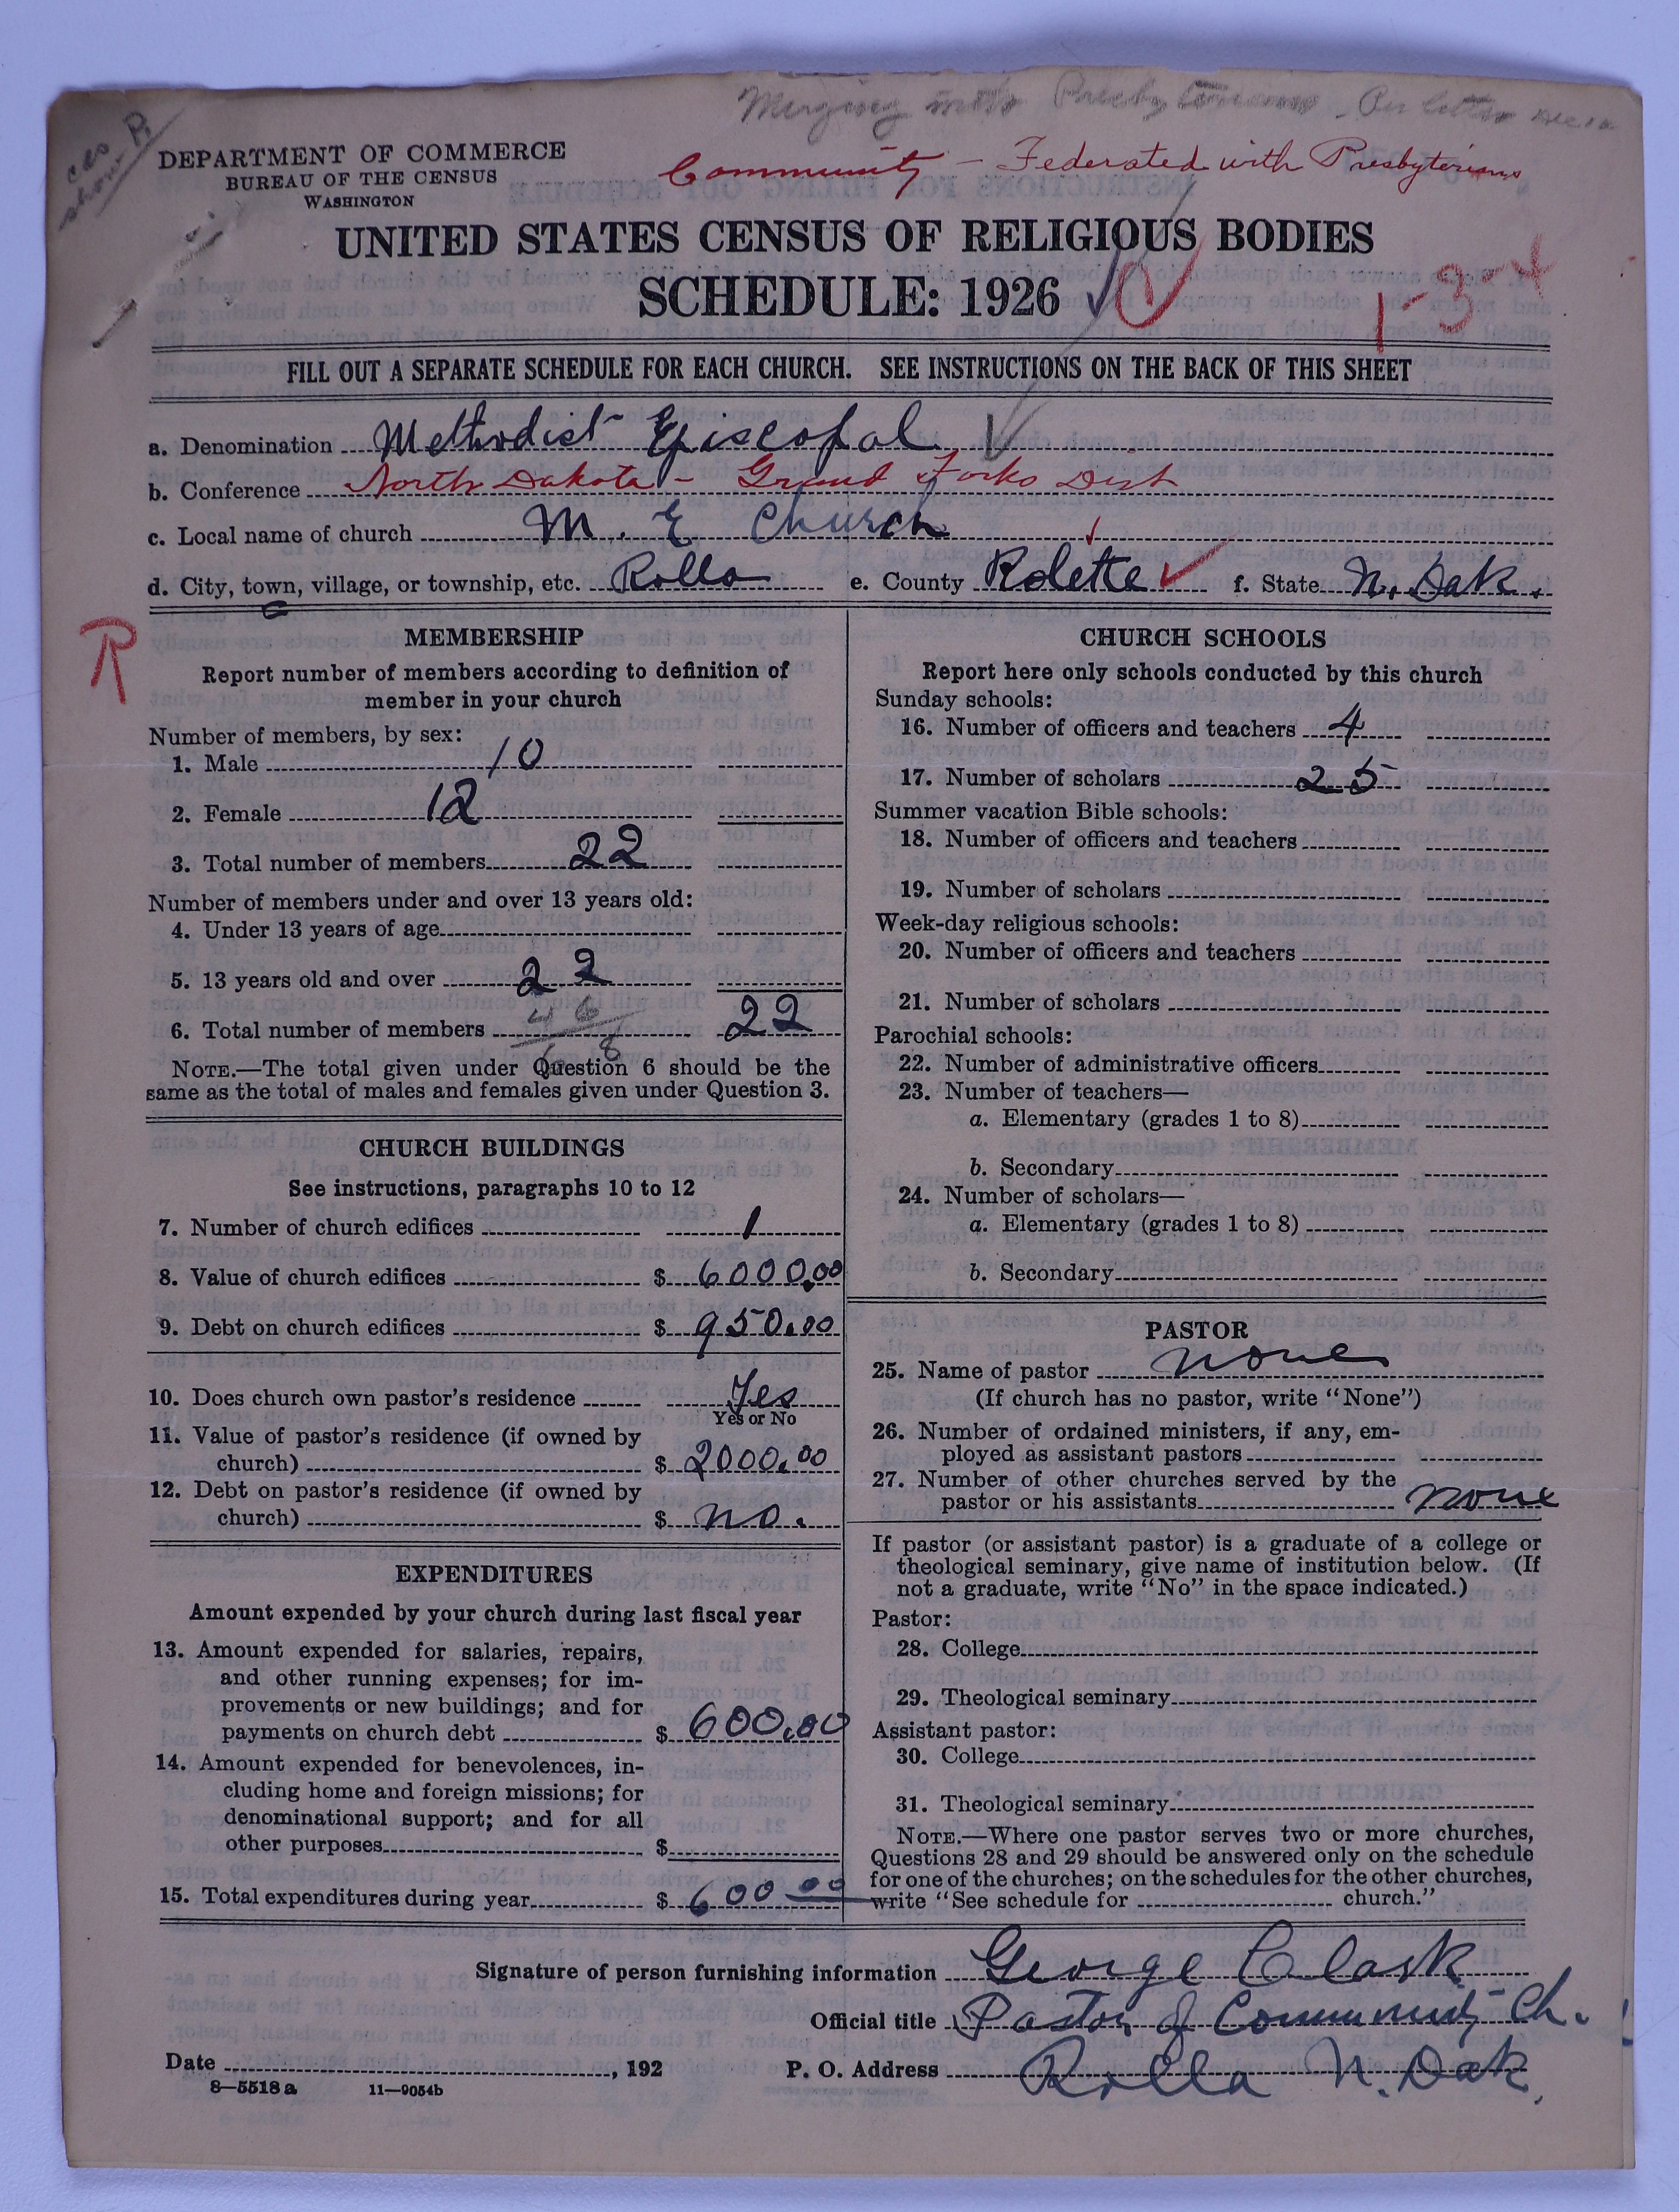 Merging with Presbyterians - Per letter
ces
show P.
DEPARTMENT OF COMMERCE
BUREAU OF THE CENSUS
WASHINGTON
Community - Federated with Presbyterians
UNITED STATES CENSUS OF RELIGIOUS BODIES
SCHEDULE: 1926
1-3-4
FILL OUT A SEPARATE SCHEDULE FOR EACH CHURCH. SEE INSTRUCTIONS ON THE BACK OF THIS SHEET
a. Denomination Methodist Episcopal
b. Conference North Dakota - Grand Forks Dist
c. Local name of church M. E Church
d. City, town, village, or township, etc. Rolla e. County Rolette f. State N. Dak.
R
MEMBERSHIP
Report number of members according to definition of
member in your church
Number of members, by sex:
1. Male 10
2. Female 12
3. Total number of members 22
Number of members under and over 13 years old:
4. Under 13 years of age
5. 13 years old and over 22
6. Total number of members 46 22
68
NOTE.—The total given under Question 6 should be the
same as the total of males and females given under Question 3.
CHURCH BUILDINGS
See instructions, paragraphs 10 to 12
7. Number of church edifices 1
8. Value of church edifices $ 6000.00
9. Debt on church edifices $ 950.00
10. Does church own pastor's residence Yes
Yes or No
11. Value of pastor's residence (if owned by
church) $ 2000.00
12. Debt on pastor's residence (if owned by
church) $ no.
EXPENDITURES
Amount expended by your church during last fiscal year
13. Amount expended for salaries, repairs,
and other running expenses; for im-
provements or new buildings; and for
payments on church debt $ 600.00
14. Amount expended for benevolences, in-
cluding home and foreign missions; for
denominational support; and for all
other purposes $
15. Total expenditures during year $ 600 00
CHURCH SCHOOLS
Report here only schools conducted by this church
Sunday schools:
16. Number of officers and teachers 4
17. Number of scholars 25
Summer vacation Bible schools:
18. Number of officers and teachers
19. Number of scholars
Week-day religious schools:
20. Number of officers and teachers
21. Number of scholars
Parochial schools:
22. Number of administrative officers
23. Number of teachers—
a. Elementary (grades 1 to 8)
b. Secondary
24. Number of scholars—
a. Elementary (grades 1 to 8)
b. Secondary
PASTOR
25. Name of pastor none
(If church has no pastor, write "None")
26. Number of ordained ministers, if any, em-
ployed as assistant pastors
27. Number of other churches served by the
pastor or his assistants none
If pastor (or assistant pastor) is a graduate of a college or
theological seminary, give name of institution below. (If
not a graduate, write "No" in the space indicated.)
Pastor:
28. College
29. Theological seminary
Assistant pastor:
30. College
31. Theological seminary
NOTE.—Where one pastor serves two or more churches,
Questions 28 and 29 should be answered only on the schedule
for one of the churches; on the schedules for the other churches,
write "See schedule for church."
Signature of person furnishing information George Clark
Official title Pastor of Community Ch.
Date , 192 P. O. Address Rolla N. Dak.
8—5518a 11—9054b